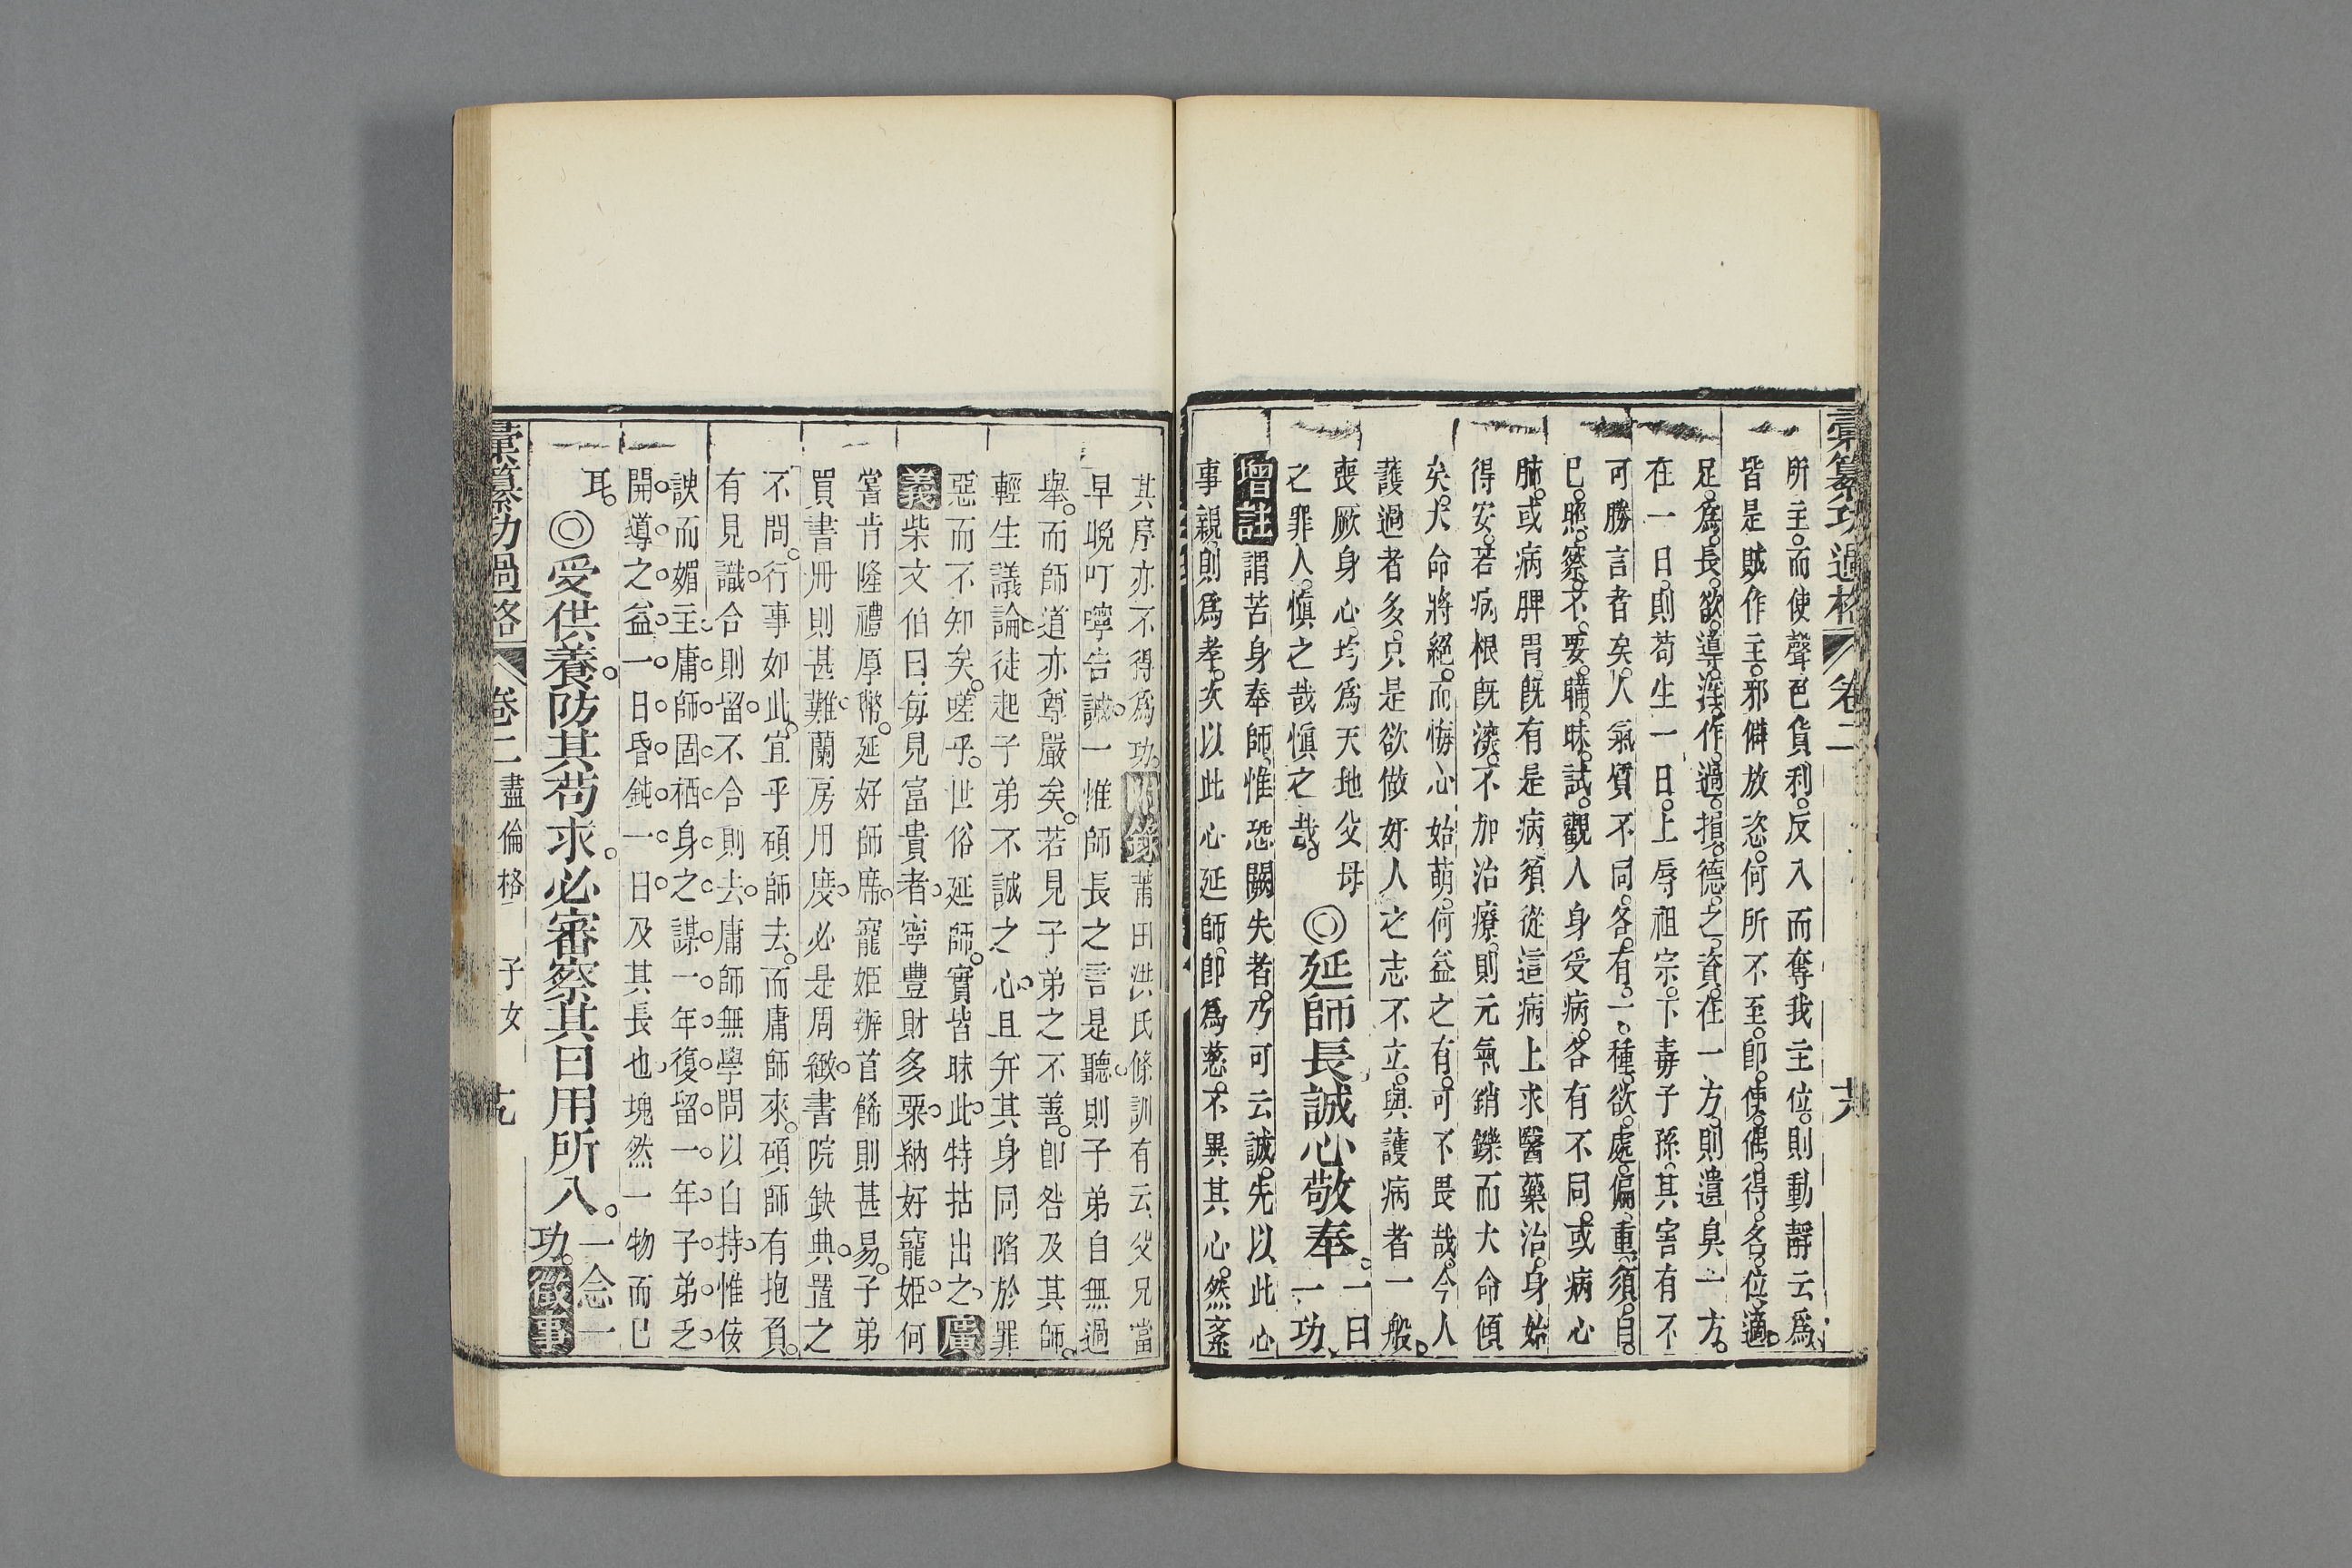 彙纂功過格 卷二 十六
所主。而使聲色貨利。反入而奪我主位。則動靜云爲、
皆是賊作主。邪僻放恣。何所不至。卽使偶得名位。適
足爲長欲導淫作過損德之資。在一方。則遺臭一方。
在一日。則苟生一日。上辱祖宗。下毒子孫。其害有不
可勝言者矣。人氣質不同。各有一種欲處偏重。須自
已照察。不要瞞昧。試觀人身受病。各有不同。或病心
肺。或病脾胃。旣有是病。須從這病上求醫藥治。身始
得安。若病根旣深。不加治療。則元氣銷鑠而大命傾
矣。大命將絕。而悔心始萌。何益之有。可不畏哉。今人
護過者多。只是欲做好人之志不立。與護病者一般。
喪厥身心。均爲天地父母
之罪人。愼之哉愼之哉。
◎延師長誠心敬奉。一日一功、
增註 謂苦身奉師。惟恐闕失者。乃可云誠。先以此心
事親則爲孝。次以此心延師。卽爲慈。不異其心。然紊
其序亦不得爲功。附錄 莆田洪氏條訓有云。父兄當
早晚叮嚀告誡。一惟師長之言是聽。則子弟自無過
舉。而師道亦尊嚴矣。若見子弟之不善。卽咎及其師。
輕生議論。徒起子弟不誠之心。且幷其身同陷於罪
惡而不知矣。嗟乎。世俗延師。實皆昧此。特拈出之。廣
義 柴文伯曰。每見富貴者。寧豐財多粟。納好寵姬。何
嘗肯隆禮厚幣。延好師席。寵姬辦首餙則甚易。子弟
買書冊則甚難。蘭房用度。必是周緻。書院缺典。置之
不問。行事如此。宜乎碩師去。而庸師來。碩師有抱負。
有見識。合則留。不合則去。庸師無學問以自持。惟佞
諛而媚主。庸師固栖身之謀。一年復留一年。子弟乏
開導之益。一日昏鈍一日。及其長也。塊然一物而已
耳。
◎受供養。防其苟求。必審察其日用所入。一念一功。徵事
彙纂功過格 卷二 盡倫格 子女 十七